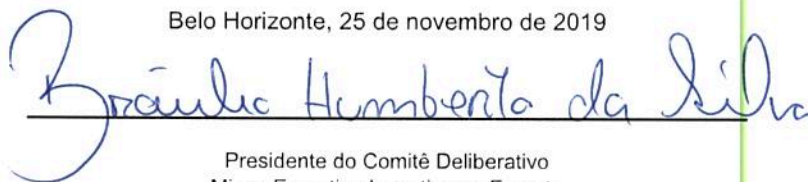 Belo Horizonte, 25 de novembro de 2019
Bráulio Humberto da Silva
Presidente do Comitê Deliberativo